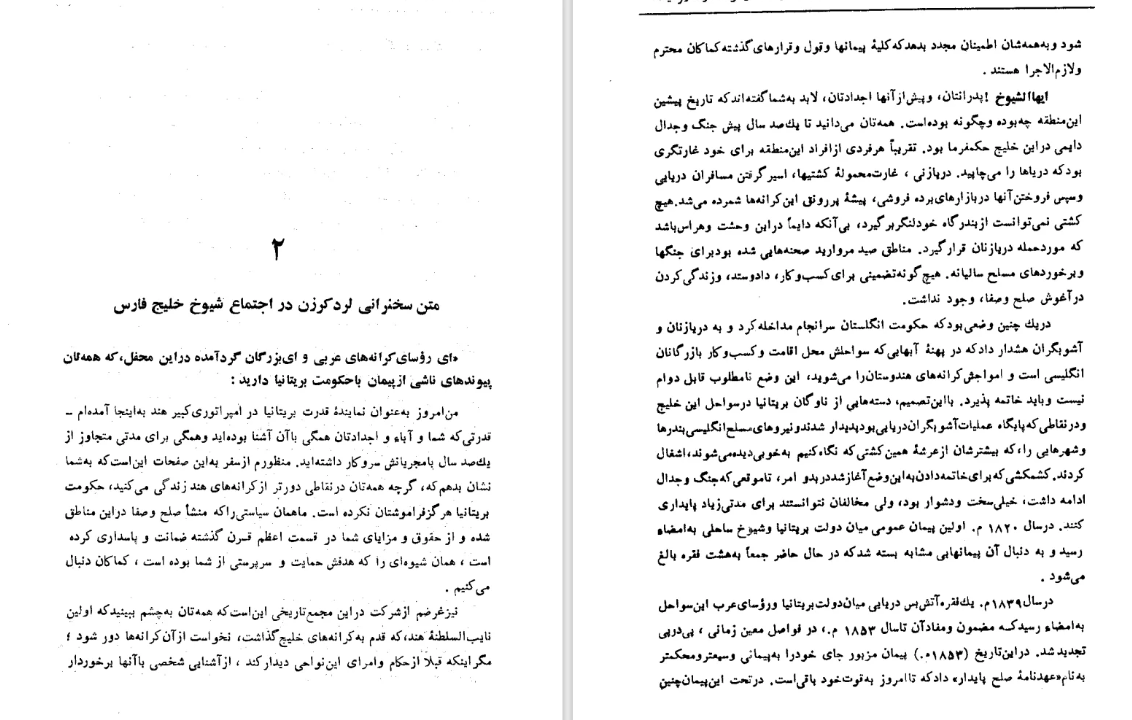 ۲
متن سخنرانی لرد کرزن در اجتماع شیوخ خلیج فارس
«ای رؤسای کرانه‌های عربی و ای بزرگان گردآمده دراین محفل، که همه‌تان
پیوندهای ناشی ازپیمان باحکومت بریتانیا دارید :
من‌امروز به‌عنوان نمایندهٔ قدرت بریتانیا در امپراتوری‌کبیر هند به‌اینجا آمده‌ام ــ
قدرتی‌که شما و آباء و اجدادتان همگی باآن آشنا بوده‌اید وهمگی برای مدتی متجاوز از
یك‌صد سال بامجریانش سروکار داشته‌اید. منظورم ازسفر به‌این صفحات این‌است که به‌شما
نشان بدهم‌که، گرچه همه‌تان درنقاطی دورتر ازکرانه‌های هند زندگی می‌کنید، حکومت
بریتانیا هرگزفراموشتان نکرده است. ماهمان سیاستی‌راکه منشأ صلح وصفا دراین مناطق
شده و از حقوق و مزایای شما در قسمت اعظم قرن گذشته ضمانت و پاسداری کرده
است ، همان شیوه‌ای را که هدفش حمایت و سرپرستی از شما بوده است ، کماکان دنبال
می‌کنیم .
نیزغرضم ازشرکت دراین مجمع‌تاریخی این‌است‌که همه‌تان به‌چشم ببینیدکه اولین
نایب‌السلطنهٔ هند،که قدم به‌کرانه‌های خلیج‌گذاشت، نخواست ازآن‌کرانه‌ها دور شود ؛
مگراینکه قبلا ازحکام وامرای این‌نواحی دیدارکند ، ازآشنایی شخصی باآنها برخوردار
شود وبه‌همه‌شان اطمینان مجدد بدهدکه‌کلیهٔ پیمانها وقول وقرارهای‌گذشته‌کماکان محترم
ولازم‌الاجرا هستند .
ایهاالشیوخ !پدرانتان، وپیش‌ازآنها اجدادتان، لابد به‌شماگفته‌اندکه تاریخ پیشین
این‌منطقه چه‌بوده وچگونه بوده‌است. همه‌تان می‌دانید تا یك‌صد سال پیش جنگ وجدال
دایمی دراین خلیج حکمفرما بود. تقریباً هرفردی ازافراد این‌منطقه برای خود غارتگری
بودکه دریاها را می‌چاپید. دریازنی ، غارت‌محمولهٔ کشتیها، اسیرگرفتن مسافران دریایی
وسپس فروختن‌آنها دربازارهای‌برده فروشی، پیشهٔ پررونق این‌کرانه‌ها شمرده می‌شد.هیچ
کشتی نمی‌توانست ازبندرگاه خودلنگربرگیرد، بی‌آنکه دایماً دراین وحشت وهراس‌باشد
که موردحمله دریازنان قرارگیرد. مناطق صید مروارید صحنه‌هایی شده بودبرای جنگها
وبرخوردهای مسلح سالیانه. هیچ‌گونه‌تضمینی برای‌کسب‌وکار، دادوستد، وزندگی‌کردن
درآغوش صلح وصفا، وجود نداشت.
دریك چنین وضعی‌بودکه حکومت انگلستان سرانجام مداخله‌کرد و به دریازنان و
آشوبگران هشدار دادکه در پهنهٔ آبهایی‌که سواحلش محل اقامت وکسب‌وکار بازرگانان
انگلیسی است و امواجش‌کرانه‌های هندوستان‌را می‌شوید، این وضع نامطلوب قابل دوام
نیست وباید خاتمه پذیرد. بااین‌تصمیم، دسته‌هایی از ناوگان بریتانیا درسواحل این خلیج
ودرنقاطی‌که‌پایگاه عملیات‌آشوبگران‌دریایی‌بودپدیدار شدندونیروهای‌مسلح‌انگلیسی‌بندرها
وشهرهایی را،که بیشترشان ازعرشهٔ همین‌کشتی‌که نگاه‌کنیم به‌خوبی‌دیده‌می‌شوند،اشغال
کردند.کشمکشی‌که‌برای‌خاتمه‌دادن‌به‌این‌وضع‌آغازشد‌دربدو امر، تاموقعی‌که‌جنگ وجدال
ادامه داشت، خیلی‌سخت ودشوار بود، ولی مخالفان نتوانستند برای مدتی‌زیاد پایداری
کنند. درسال ۱۸۲۰ م. اولین پیمان عمومی میان دولت بریتانیا وشیوخ ساحلی به‌امضاء
رسید و به دنبال آن پیمانهایی مشابه بسته شدکه در حال حاضر جمعاً به‌هشت فقره بالغ
می‌شود .
درسال۱۸۳۹م. یك‌فقره‌آتش‌بس دریایی میان‌دولت‌بریتانیا ورؤسای‌عرب این‌سواحل
به‌امضاء رسیدکــه مضمون ومفادآن تاسال ۱۸۵۳ م.، در فواصل معین زمانی ، پی‌درپی
تجدید شد. دراین‌تاریخ (۱۸۵۳م.) پیمان مزبور جای خودرا به‌پیمانی وسیعترومحکمتر
به‌نام«عهدنامهٔ صلح پایدار» دادکه تاامروز به‌قوت‌خود باقی‌است. درتحت این‌پیمان‌چنین